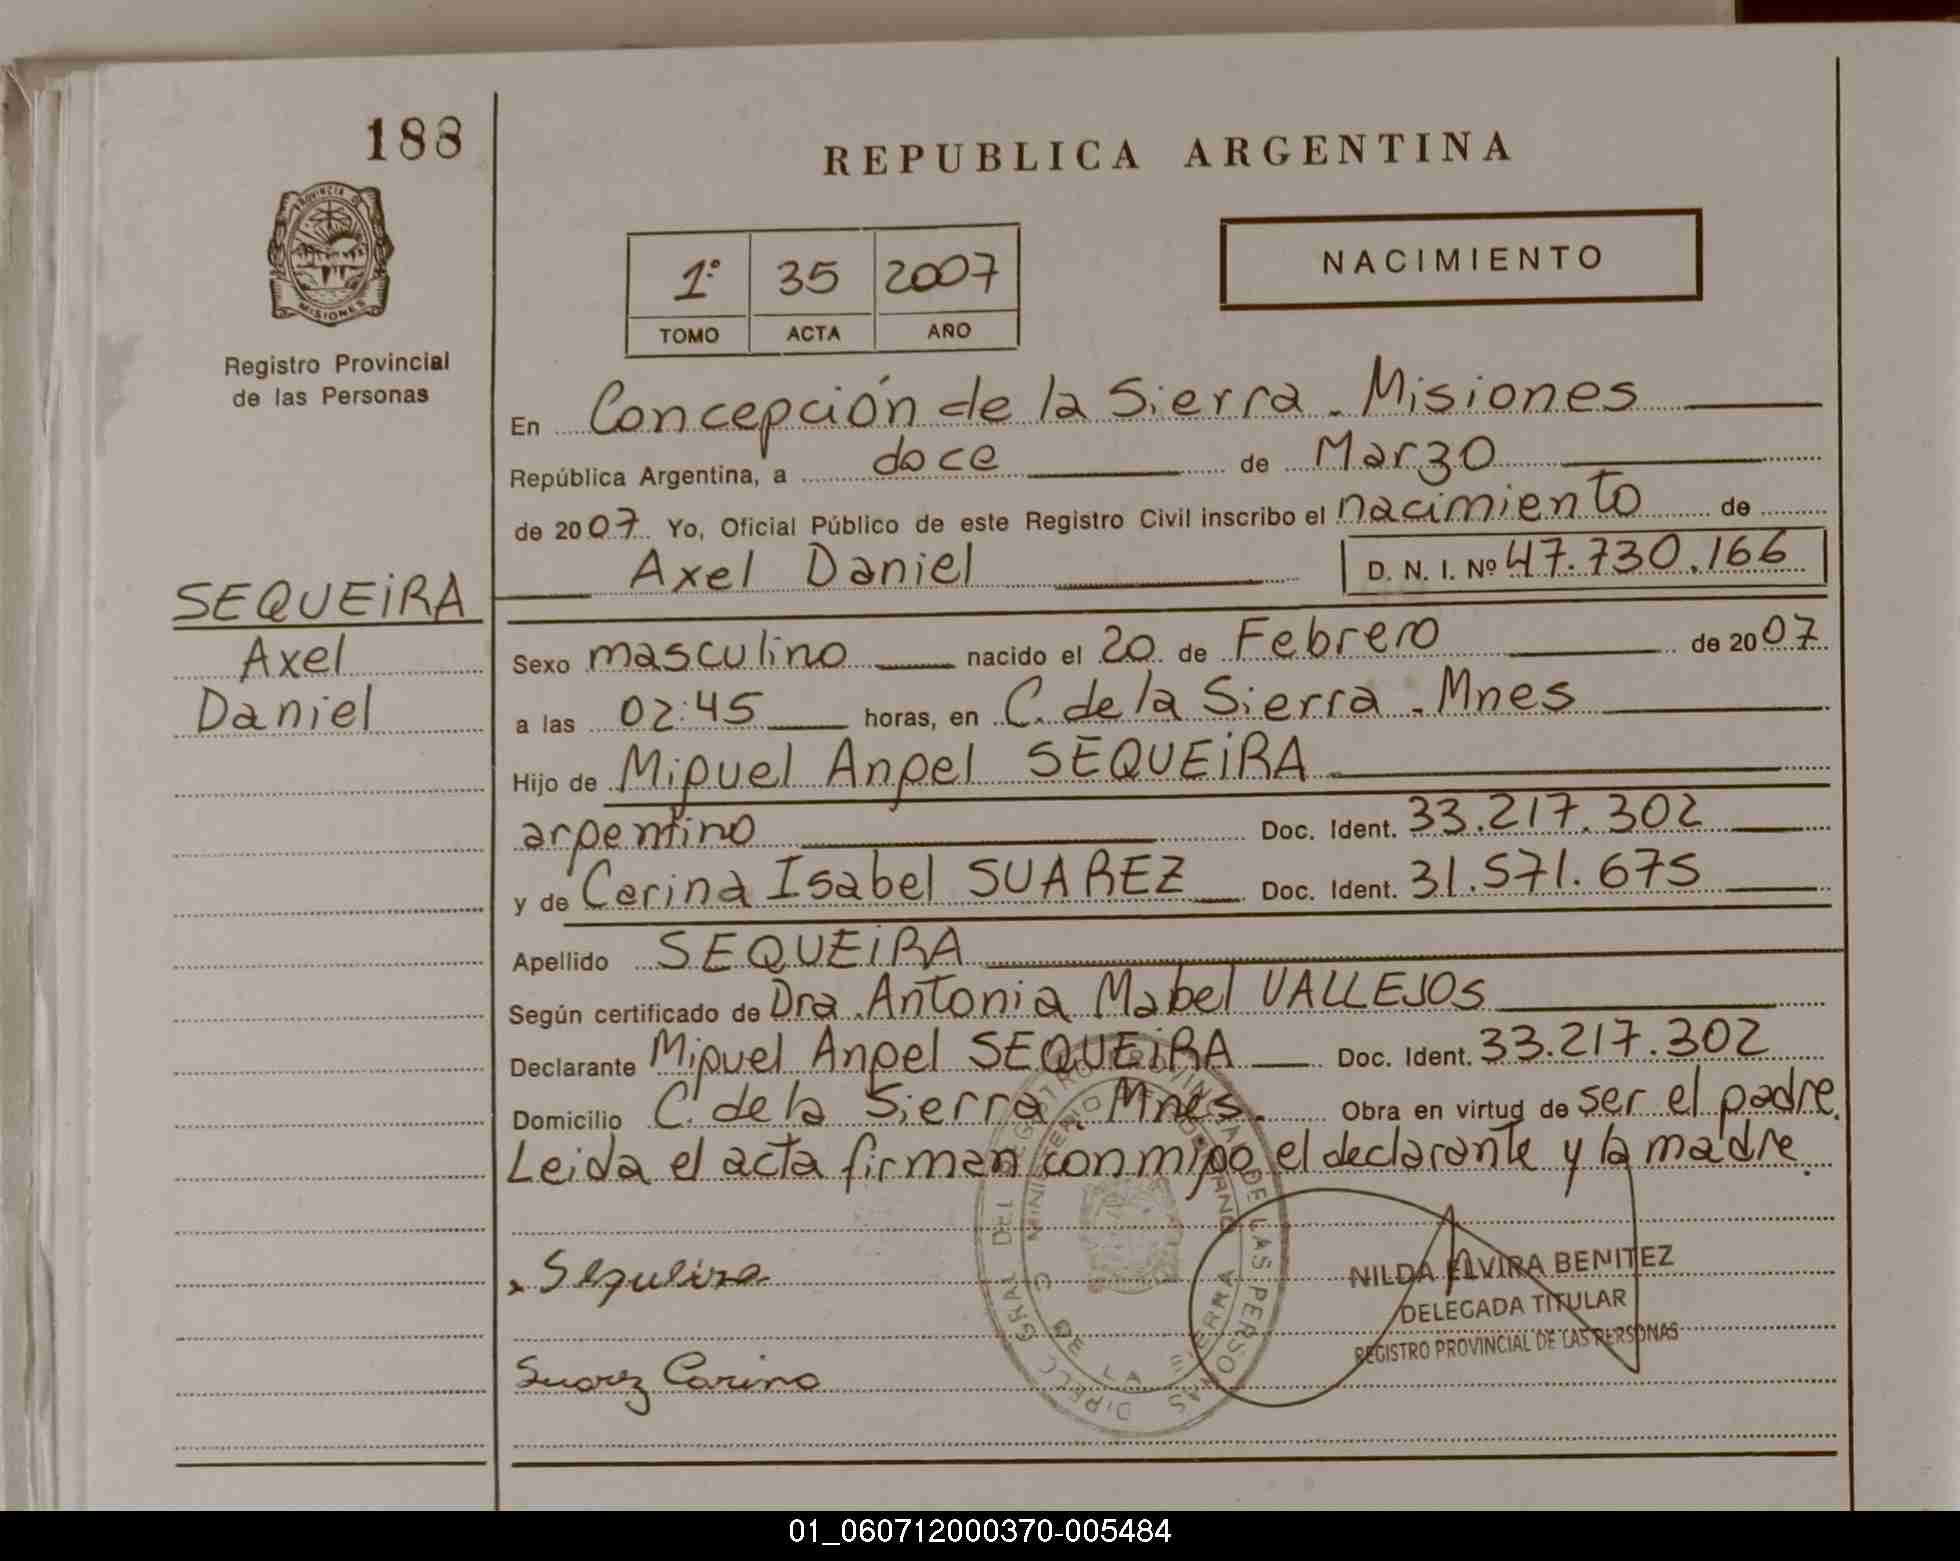 188
PROVINCIA DE
MISIONES
Registro Provincial
de las Personas
SEQUEiRA
Axel
Daniel
REPUBLICA ARGENTINA
1º 35 2007
TOMO ACTA AÑO
NACIMIENTO
En Concepción de la Sierra - Misiones
República Argentina, a doce de Marzo
de 2007 Yo, Oficial Público de este Registro Civil inscribo el nacimiento de
Axel Daniel D. N. I. Nº 47.730.166
Sexo masculino nacido el 20 de Febrero de 2007
a las 02:45 horas, en C. de la Sierra - Mnes
Hijo de Miguel Angel SEQUEiRA
argentino Doc. Ident. 33.217.302
y de Carina Isabel SUAREZ Doc. Ident. 31.571.675
Apellido SEQUEiRA
Según certificado de Dra. Antonia Mabel VALLEJOS
Declarante Miguel Angel SEQUEiRA Doc. Ident. 33.217.302
Domicilio C. de la Sierra - Mnes. Obra en virtud de ser el padre.
Leida el acta firman conmigo el declarante y la madre.
Sequeira
Suarez Carina
NILDA ELVIRA BENITEZ
DELEGADA TITULAR
REGISTRO PROVINCIAL DE LAS PERSONAS
DIRECC GRAL DEL REGISTRO PROVINCIAL DE LAS PERSONAS
MINISTERIO DE GOBIERNO
C DE LA SIERRA
01_060712000370-005484